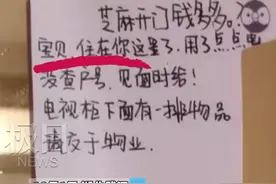 芝麻开门钱多多。
宝贝,住在你这里了,用了点点电
没查户号,见面时给!
电视柜下面有一排物品
请交于物业.
极目
NEWS